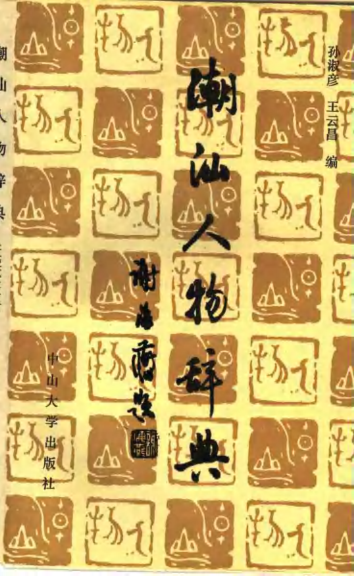 孙淑彦 王云昌 编
潮汕人物辞典
谢海燕题
中山大学出版社
潮汕人物辞典